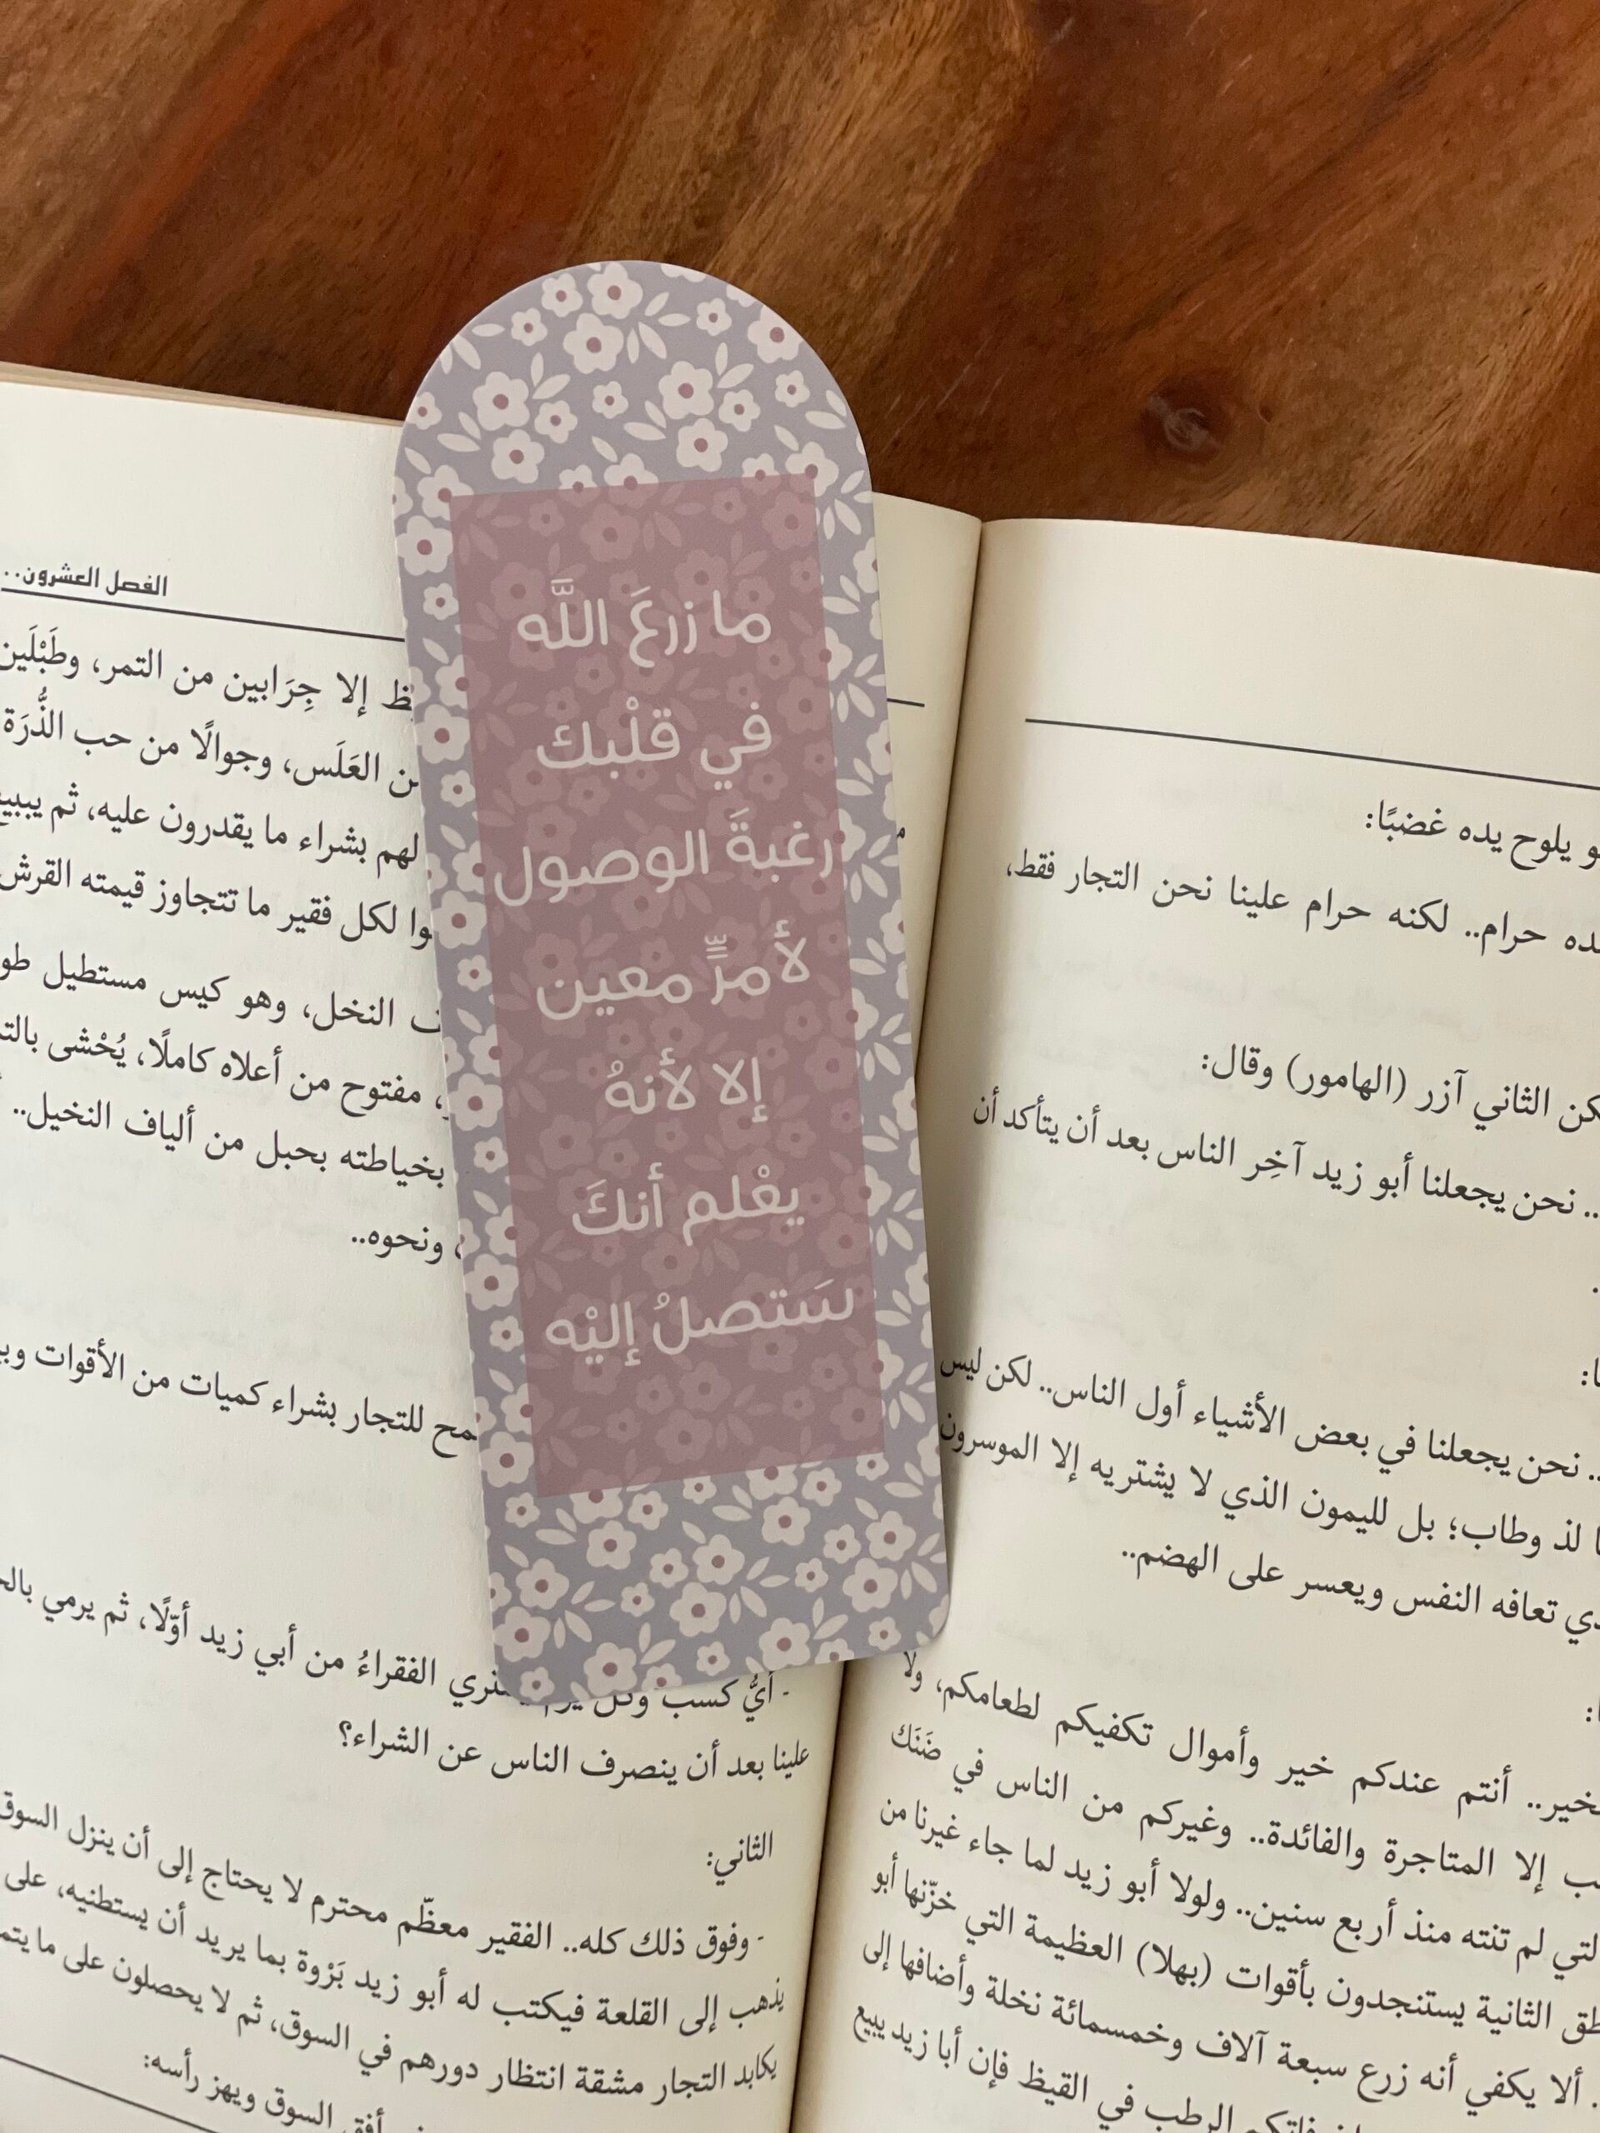 ما زرعَ اللَّه
في قلْبك
رغبةَ الوصول
لأمرٍّ معين
إلا لأنهُ
يعْلم أنكَ
ستصلُ إليْه
الفصل العشرون..
إلا جِرَابين من التمر، وطَبْلَين
العَلَس، وجوالًا من حب الذُّرَة
لهم بشراء ما يقدرون عليه، ثم
لكل فقير ما تتجاوز قيمته القرش
النخل، وهو كيس مستطيل
مفتوح من أعلاه كاملًا، يُحْشى
بخياطته بحبل من ألياف النخيل..
ونحوه..
للتجار بشراء كميات من الأقوات
- أيُّ كسب الفقراءُ من أبي زيد أوّلًا، ثم يرمي
علينا بعد أن ينصرف الناس عن الشراء؟
الثاني:
- وفوق ذلك كله.. الفقير معظّم محترم لا يحتاج إلى أن ينزل السوق
يذهب إلى القلعة فيكتب له أبو زيد بَرْوة بما يريد أن يستطنيه، على
يكابد التجار مشقة انتظار دورهم في السوق، ثم لا يحصلون على
السوق ويهز رأسه:
يلوح يده غضبًا:
حرام.. لكنه حرام علينا نحن التجار فقط،
الثاني آزر (الهامور) وقال:
.. نحن يجعلنا أبو زيد آخِر الناس بعد أن يتأكد أن
.. نحن يجعلنا في بعض الأشياء أول الناس.. لكن ليس
لذ وطاب؛ بل لليمون الذي لا يشتريه إلا الموسرون
تعافه النفس ويعسر على الهضم..
أنتم عندكم خير وأموال تكفيكم لطعامكم، ولا
إلا المتاجرة والفائدة.. وغيركم من الناس في ضَنَك
لم تنته منذ أربع سنين.. ولولا أبو زيد لما جاء غيرنا من
الثانية يستنجدون بأقوات (بهلا) العظيمة التي خزّنها أبو
ألا يكفي أنه زرع سبعة آلاف وخمسمائة نخلة وأضافها إلى
الرطب في القيظ فإن أبا زيد يبيع